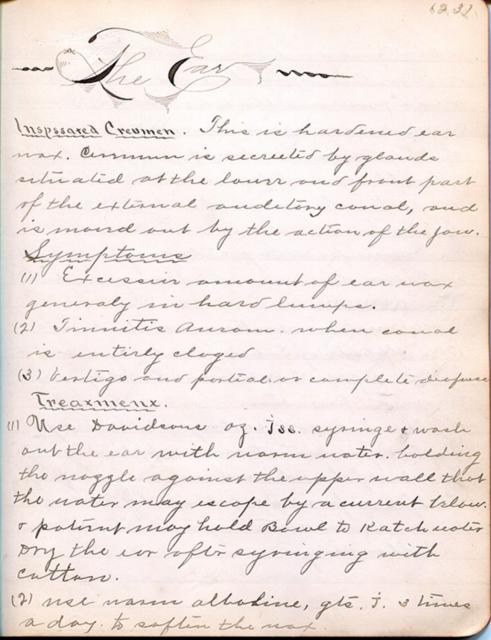 62.32.
The Ear
Inspssated Creumen. This is hardened ear
wax. Cerumun is secreeted by glands
situated at the lower and front part
of the external auditory canal, and
is moved out by the action of the jaw.
Symptoms
(1) Excessive amount of ear wax
generaly in hard lumps.
(2) Tinnitis Aurom. when canal
is entirly cloged
(3) Vertigo and partial or complete deafness
Treatment.
(1) Use Davidsons oz. Jss. syringe & wash
out the ear with warm water. holding
the nozzle against the upper wall that
the water may escape by a current below.
& patient may hold Bowl to Katch water
Dry the ear after syringing with
cotton.
(2) use warm alboline, gts. j. 3 times
a day. to soften the wax.